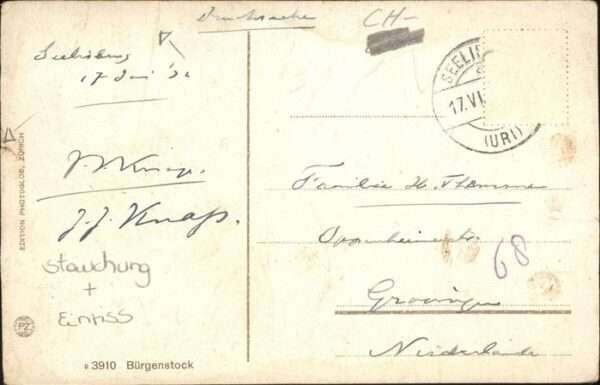 Drucksache
CH-
Seelisberg
17 Juni '32
SEELI
17.VI
(URI)
EDITION PHOTOGLOB, ZÜRICH
J. J. Knap.
Familie H.
68
Groningen
Niederlande
Stauchung
+
Einriss
PZ
3910 Bürgenstock